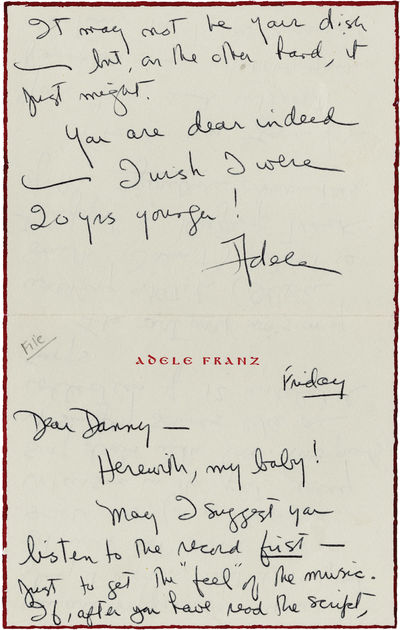 It may not be your dish
— but, on the other hand, it
just might.
You are dear indeed
— I wish I were
20 yrs younger!
Adele
File
ADELE FRANZ
Friday
Dear Danny —
Herewith, my baby!
May I suggest you
listen to the record first —
just to get the "feel" of the music.
If, after you have read the script,